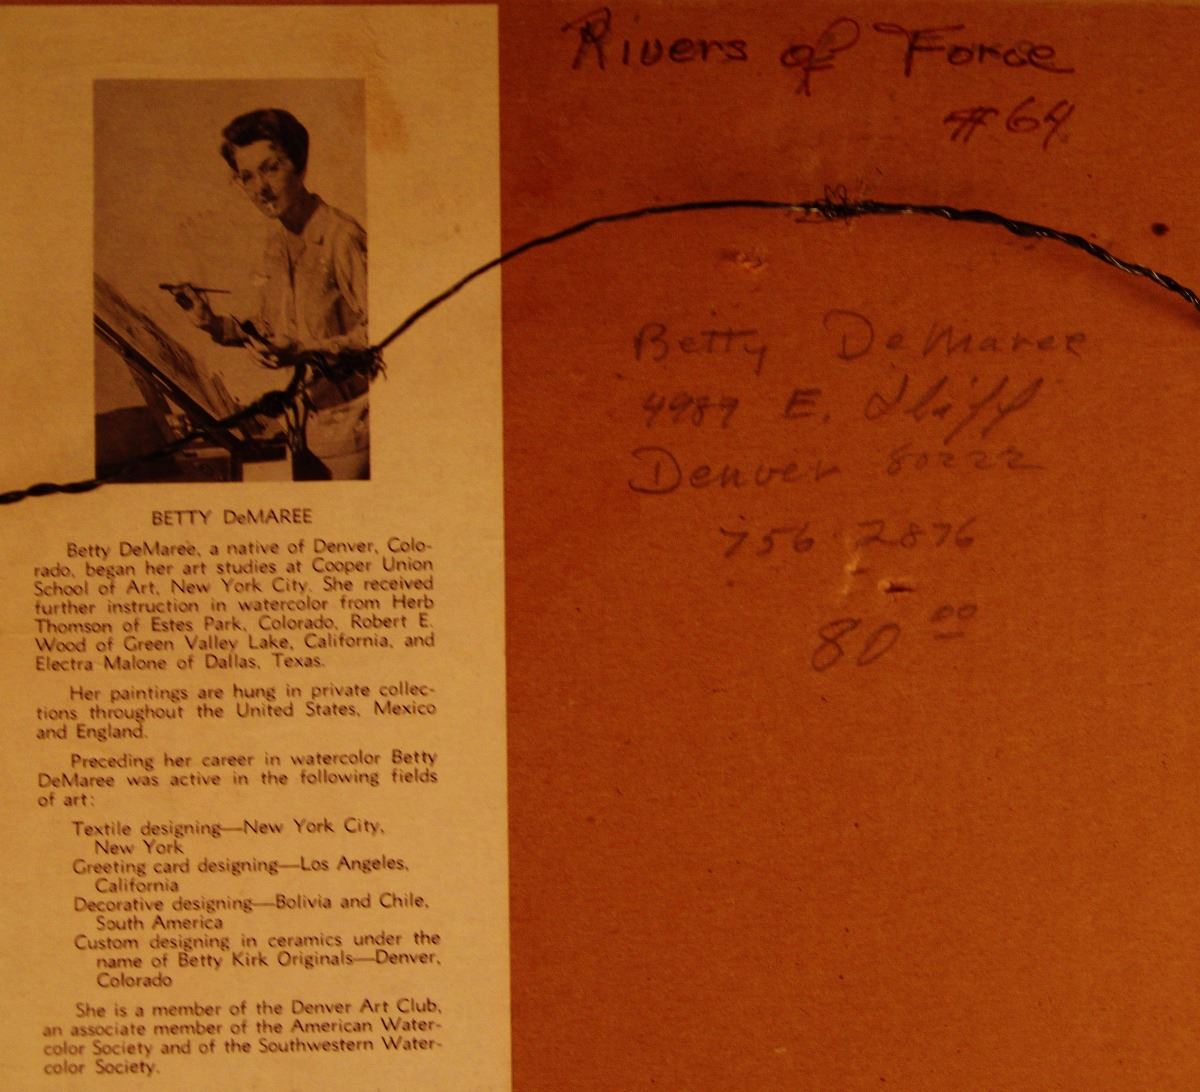 BETTY DeMAREE
Betty DeMaree, a native of Denver, Colo-
rado, began her art studies at Cooper Union
School of Art, New York City. She received
further instruction in watercolor from Herb
Thomson of Estes Park, Colorado, Robert E.
Wood of Green Valley Lake, California, and
Electra Malone of Dallas, Texas.
Her paintings are hung in private collec-
tions throughout the United States, Mexico
and England.
Preceding her career in watercolor Betty
DeMaree was active in the following fields
of art:
Textile designing—New York City,
New York
Greeting card designing—Los Angeles,
California
Decorative designing—Bolivia and Chile,
South America
Custom designing in ceramics under the
name of Betty Kirk Originals—Denver,
Colorado
She is a member of the Denver Art Club,
an associate member of the American Water-
color Society and of the Southwestern Water-
color Society.
Rivers of Force
#64
Betty DeMaree
4989 E. Iliff
Denver 80222
756-2876
80 00